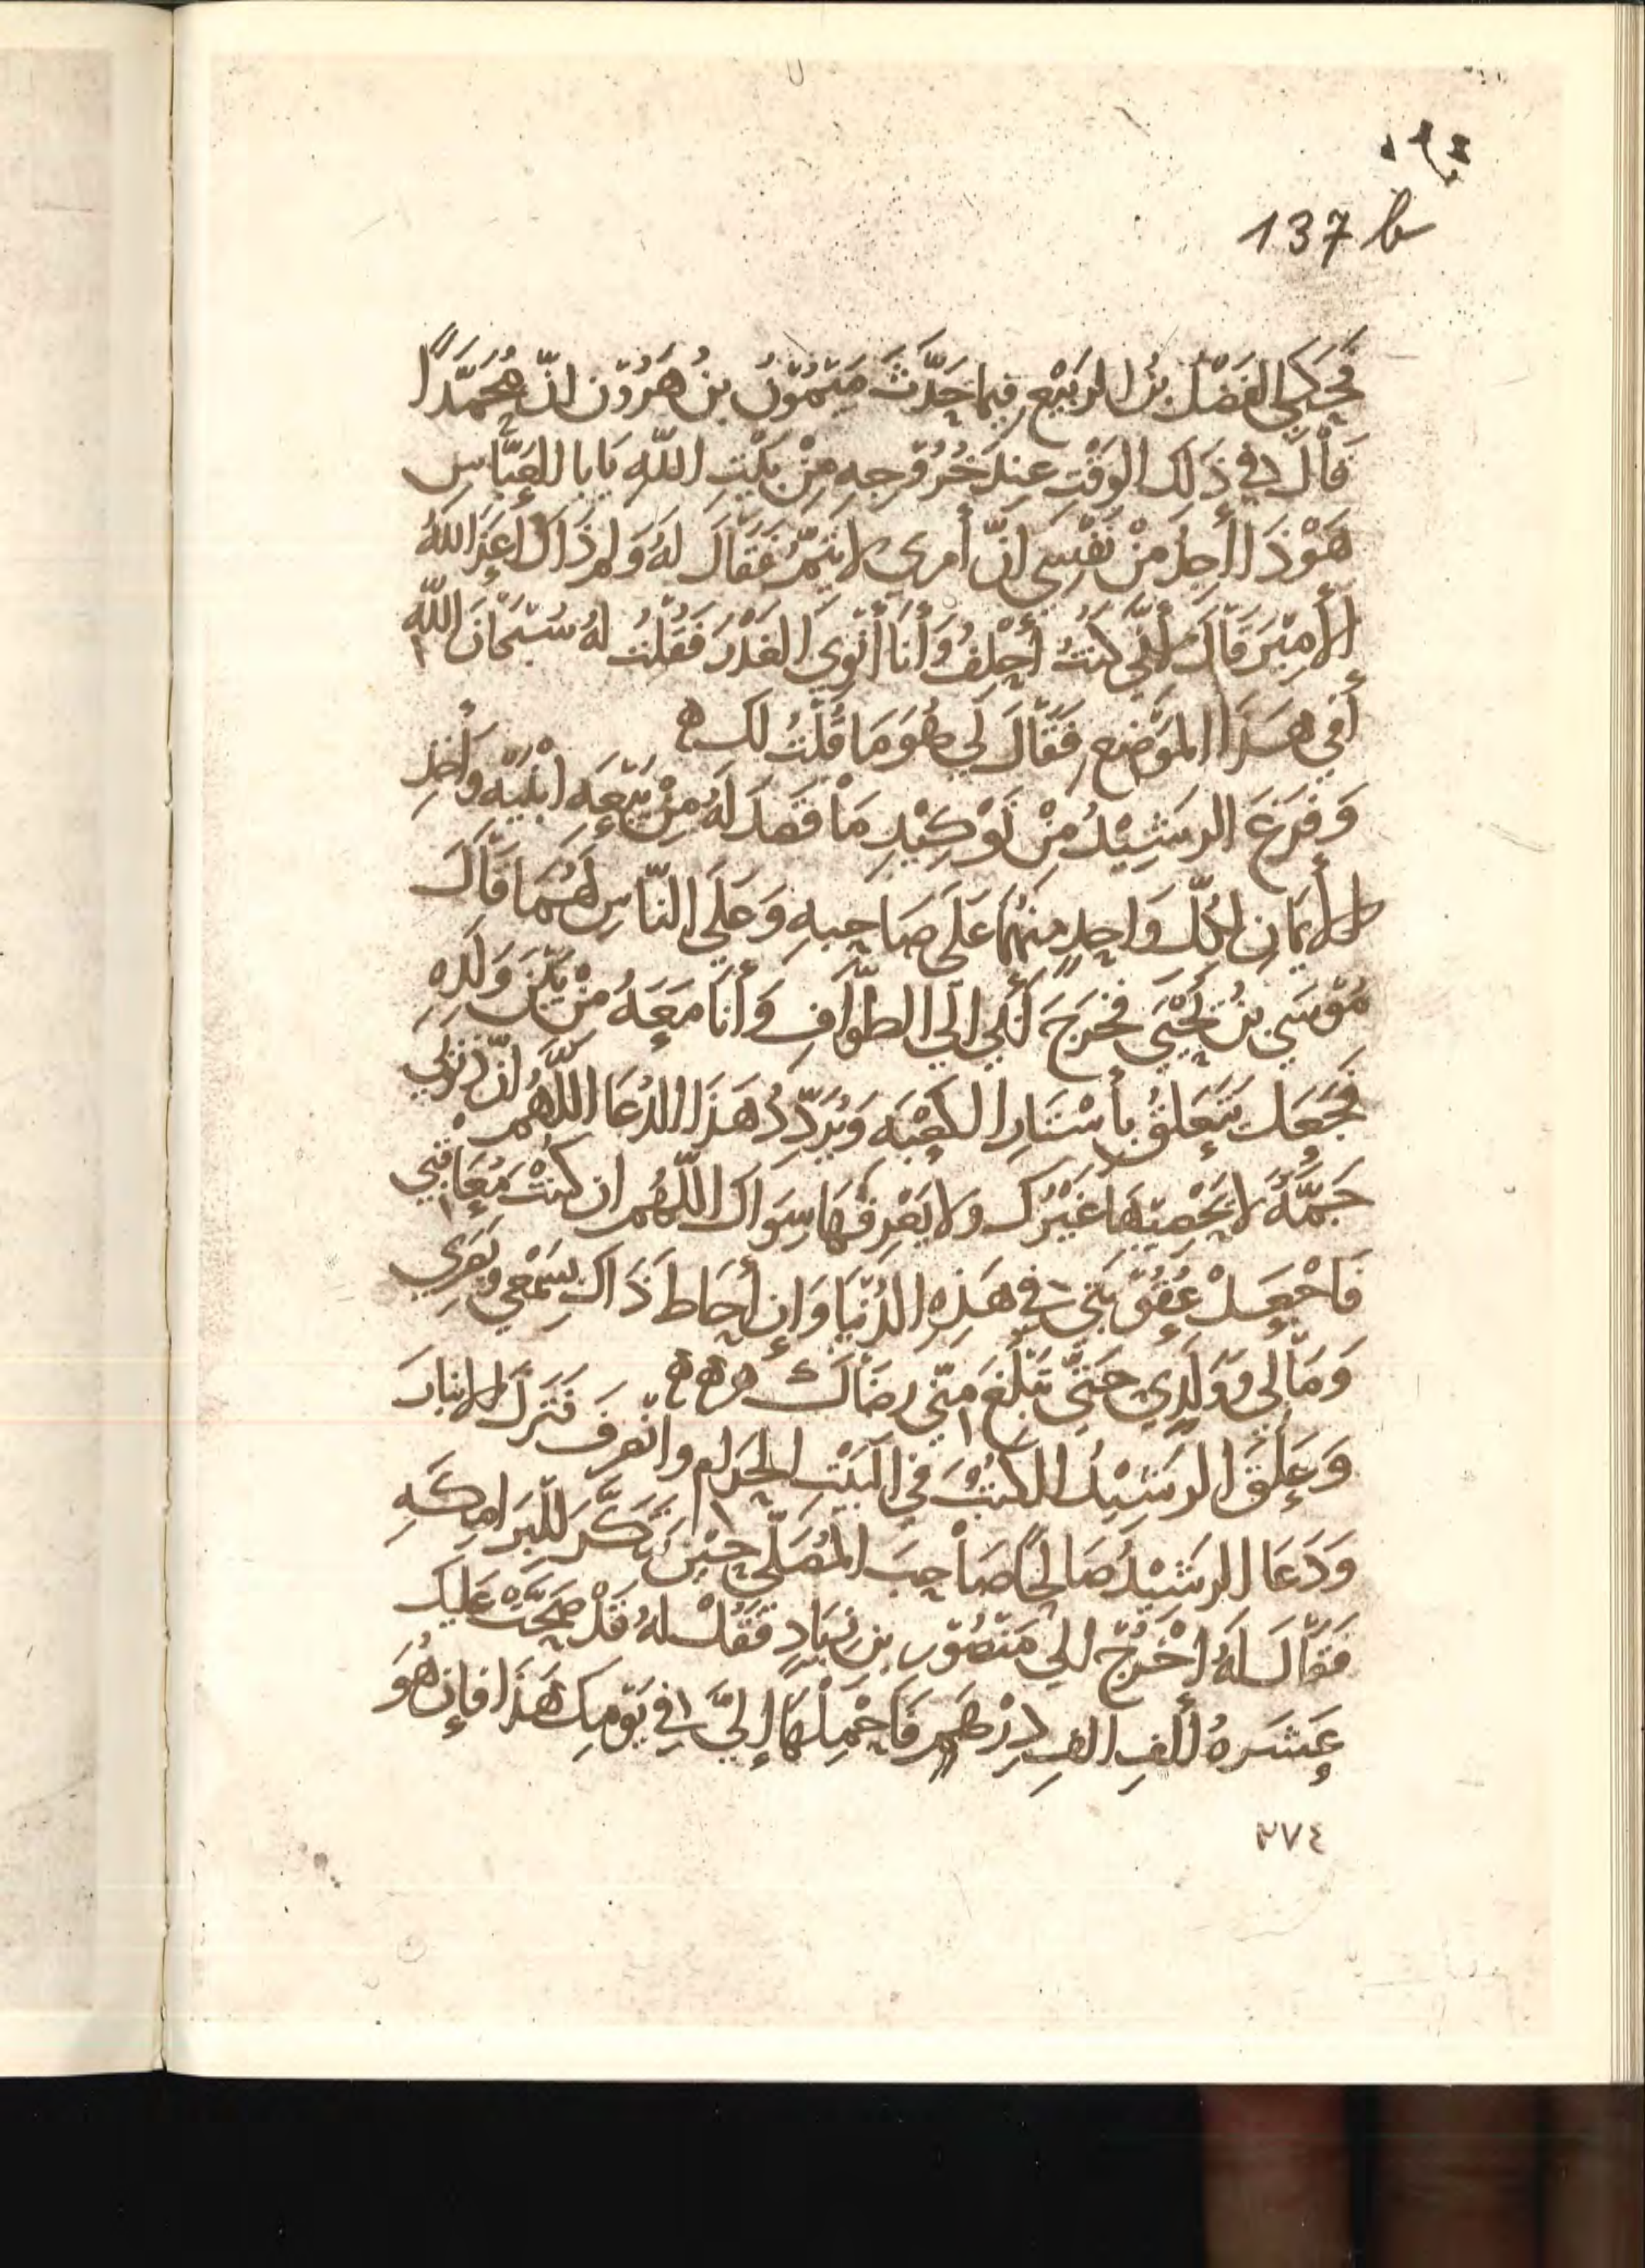 137 b
فَحَكَى الفَضْلُ بنُ الرَبيْعِ فِيمَا حَدَّثَ مَيْمُوْنُ بنُ هَرُوْنَ انَّ مُحَمَّدًا
قَالَ لي في ذَلِكَ الوَقْتِ عِندَ خُرُوْجِهِ مِنْ بَيْتِ اللّهِ يَابا العَبَّاسِ
هَوْذَا أَجِدُ مِنْ نَفْسِي انَّ أَمرِي لا يَتِمُّ فَقَالَ لَهُ وَلِمَ ذَاكَ اعَزَ اللّهُ
الأَمِيْرَ قَالَ لأَنّي كُنْتُ أَحْلِفُ وَأَنَا أَنْوِي الغَدْرَ فَقُلْتُ لَهُ سُبْحَانَ اللّهِ
أَفِي هَذَا المَوْضِعِ فَقَالَ لِي هُوَ مَا قُلْتُ لَكَ ه
وَفَرَغَ الرَشِيْدُ مِنْ تَوْكِيْدِ مَا قَصَدَ لَهُ مِنْ بَيْعَه ابْنَيْه وَأَخْذِ
الأَيْمَانِ لِكُلِّ وَاحِدٍ مِنهُمَا عَلَى صَاحِبهِ وَعَلَى النَّاسِ لَهُمَا قَالَ
مُوْسَي بنُ يَحْيَى فَخَرَجَ أَبي الَي الطَّوَافِ وَأَنَا مَعَهُ مِنْ بَيْنِ وَلَدِهِ
فَجَعَلَ يَتَعَلقُ بِأَسْتَارِ الكَعْبَه وَيُرَدِّدُ هَذَا الدُعَا اللَّهُمَ انَّ ذنُوْبي
جَمَّةٌ لا يُحْصِيْهَا غَيْرُكَ وَلا يَعْرِفُهَا سِوَاكَ اللَّهُمَ ان كُنْتَ مُعَاقبي
فَاجْعَلْ عُقُوْبَتِي في هَذِهِ الدُنْيَا وَإِن أَحَاطَ ذَاكَ بِسَمْعِي وَبَصَري
وَمَالي وَوَلَدِي حَتَّى تَبْلُغَ مِنّي رِضَاكَ ه ه ه
وَعَلَّقَ الرَشِيْدُ الكُتُبَ في البَيْتِ الحَرَامِ وانصَرفَ فَنَزَلَ الانبَارَ
وَدَعَا الرَشِيْدُ صَالحًا صَاحِبَ المُصَلّي حِيْنَ تَنَكَّرَ للبَرَامِكَهِ
فَقَالَ لَهُ اخْرُجْ الي مَنْصُوْرِ بنِ زيَادٍ فَقُلْ لَهُ قَدْ صَحَّتْ عَلَيكَ
عَشَرَهُ أَلفِ الفِ دِرْهَمٍ فَاحْمِلهَا إِليَّ في يَوْمِكَ هَذَا فإِن هُوَ
٢٧٤